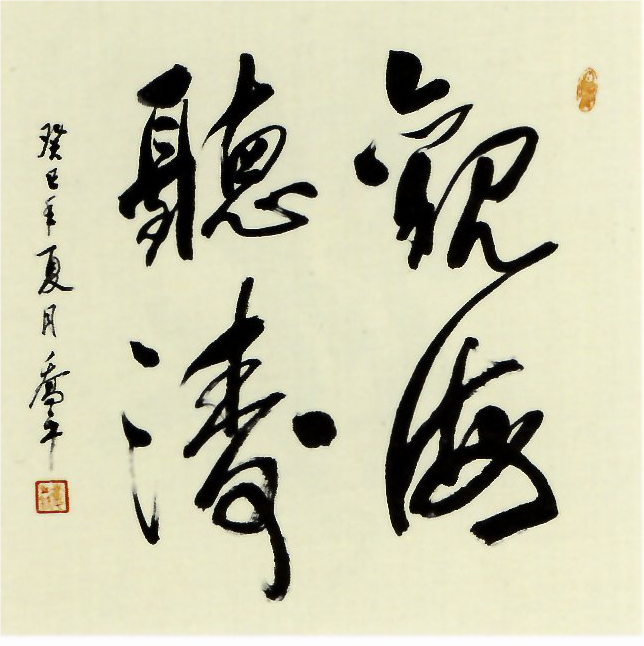 觀海
聽濤
癸巳年夏月喬平